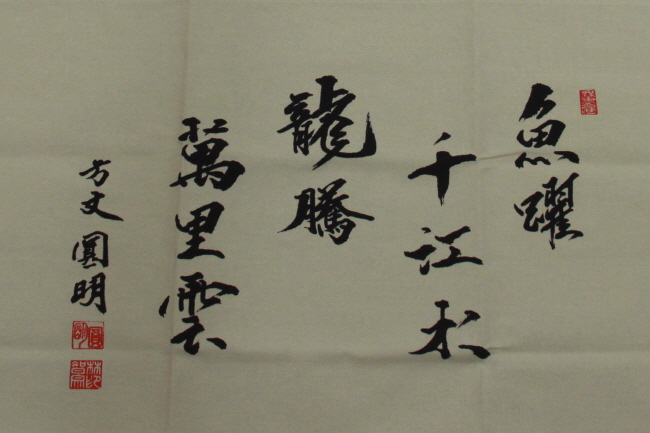 魚躍
千江水
龍騰
萬里雲
方丈圓明